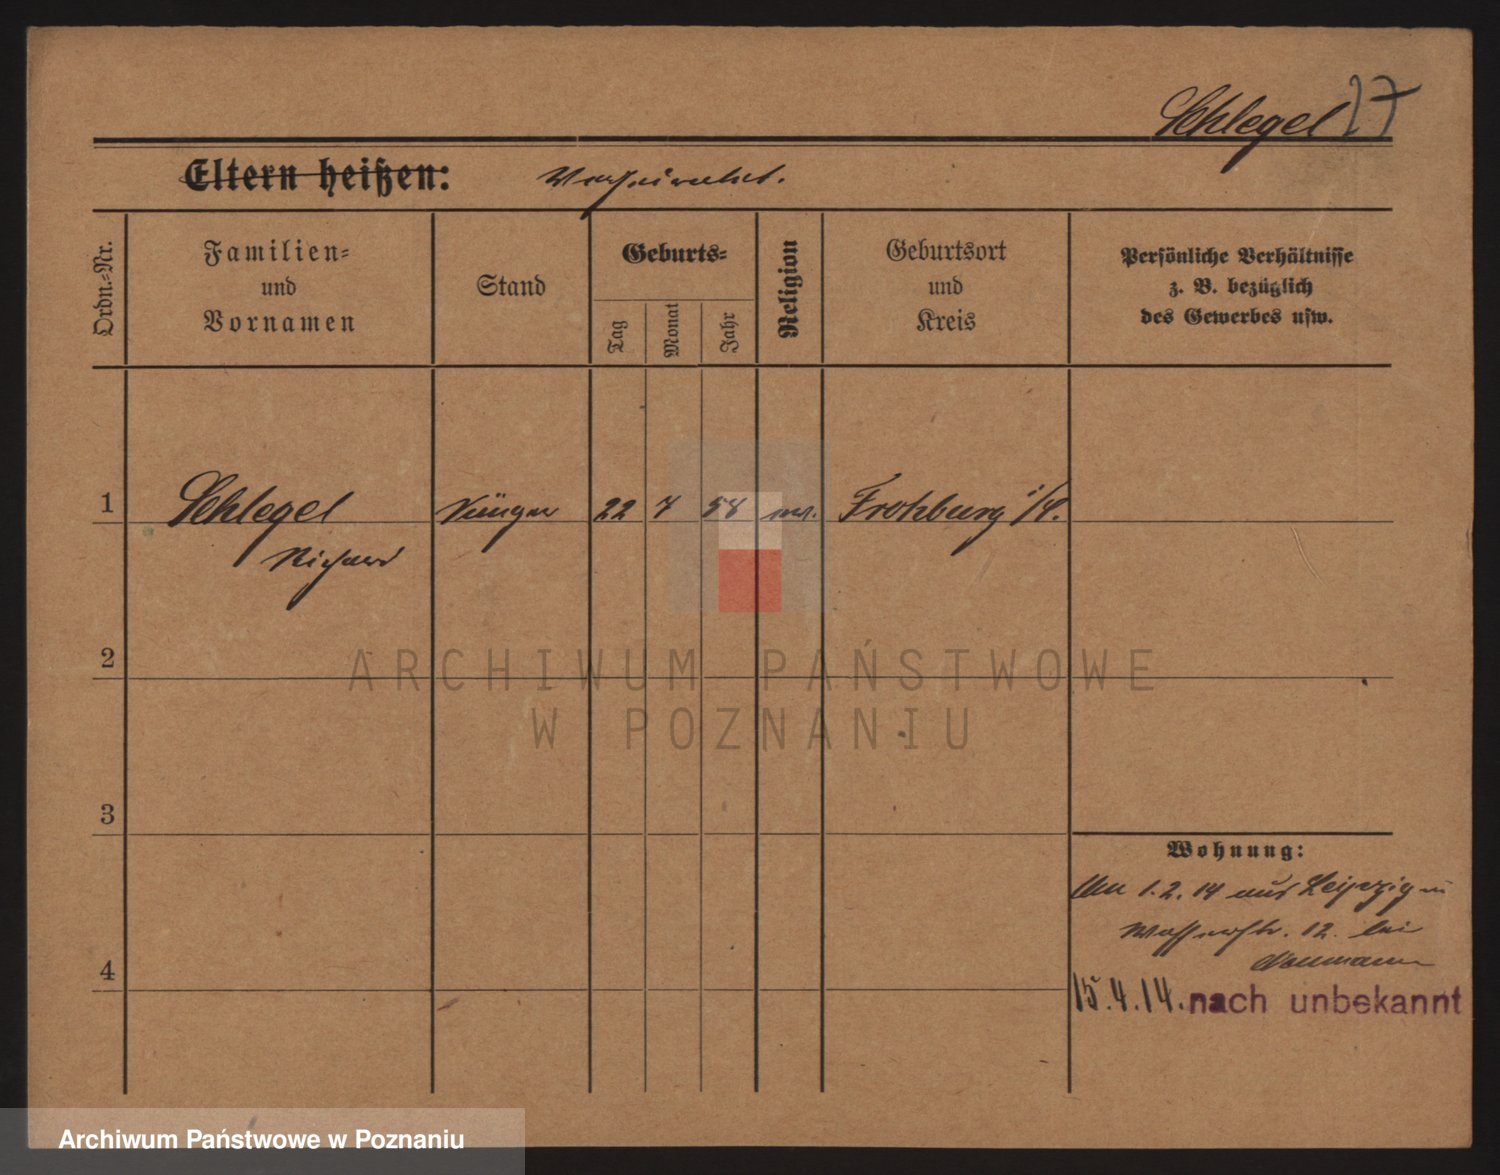 Schlegel 27
Eltern heißen: Verheiratet.
Ordn.-Nr.
Familien-
und
Vornamen
Stand
Geburts-
Tag
Monat
Jahr
Religion
Geburtsort
und
Kreis
Persönliche Verhältnisse
z. B. bezüglich
des Gewerbes usw.
1 Schlegel 22 7 58 ev. Frohburg i/S.
Richard
2
ARCHIWUM PAŃSTWOWE
W POZNANIU
3
Wohnung:
1.2.14 aus Leipzig
Wasserstr. 12. bei
4
15.4.14. nach unbekannt
Archiwum Państwowe w Poznaniu